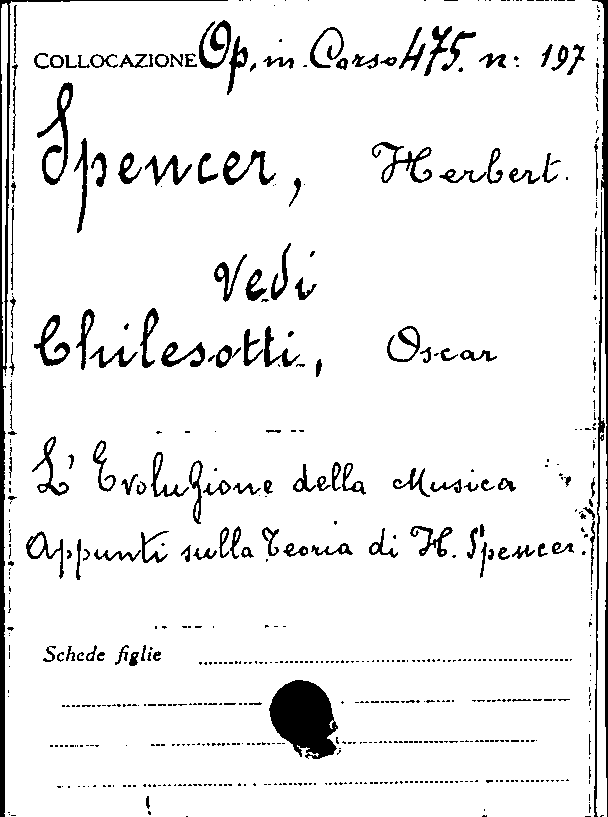 COLLOCAZIONE Op. in Corso 475. n: 197
Spencer, Herbert.
vedi
Chilesotti, Oscar
L' Evoluzione della Musica
Appunti sulla Teoria di H. Spencer.
Schede figlie